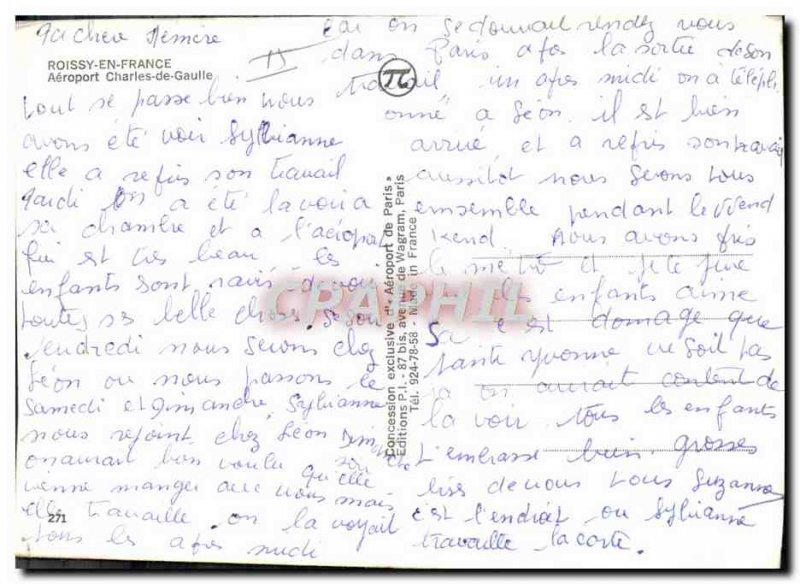 ma chere Mémère
ROISSY-EN-FRANCE
Aéroport Charles-de-Gaulle
tout se passe bien nous
avons été voir Sylvianne
elle a refris son travail
on a été la voir a
sa chambre et a l'aéroport
fui est tres beau les
enfants sont ravis de voir
toutes ses belle choses
vendredi nous serons chez
Léon ou nous passons le
samedi et dimanche, Sylvianne
nous rejoint chez Léon
on aurait bien voulu qu'elle
vienne manger avec nous mais
elle travaille on la voyait
tous les afres midi
271
car on se donnait rendez vous
dans Paris afres la sortie de son
travail un afres midi on a téléph
onné a Léon il est bien
arrivé et a refris son travail
aussitot nous serons tous
ensemble pendant le weend
kend. Nous avons fris
le metro et
les enfants aime
Sa c'est domage que
tante yvonne ne soit pas
la on aurait content de
la voir tous les enfants
t'embrasse bien grosses
bises de nous tous Suzanne
c'est l'endroit ou Sylvianne
travaille la carte.
π
Concession exclusive d'« Aéroport de Paris »
Editions P.I. - 87 bis, avenue de Wagram, Paris
Tél. 924-78-58 - Made in France
CRAPHIL